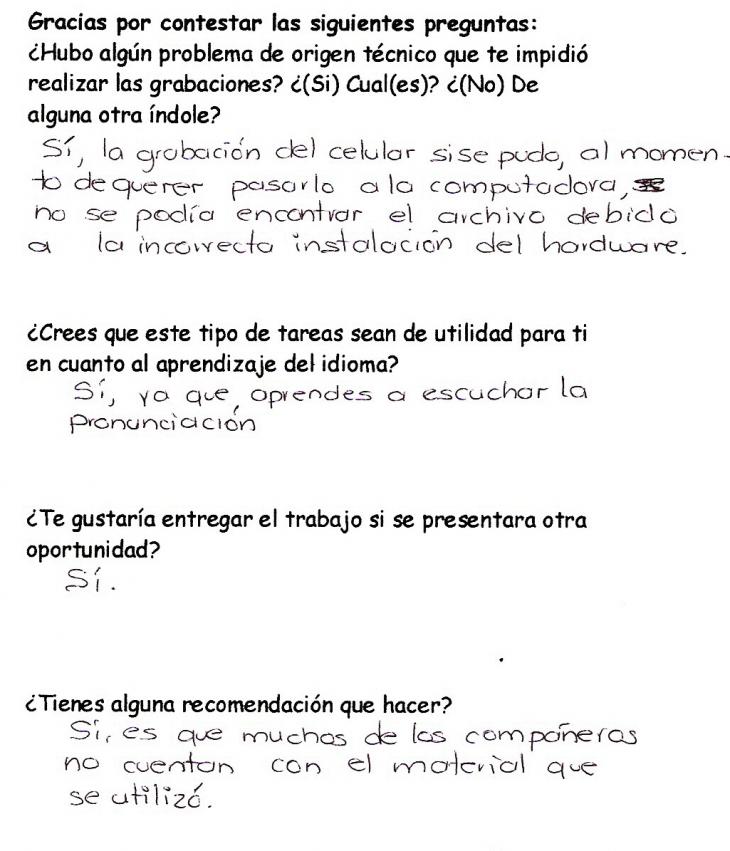 Gracias por contestar las siguientes preguntas:
¿Hubo algún problema de origen técnico que te impidió
realizar las grabaciones? ¿(Si) Cual(es)? ¿(No) De
alguna otra índole?
Sí, la grabación del celular si se pudo, al momen-
to de querer pasarlo a la computadora,
no se podía encontrar el archivo debido
a la incorrecta instalación del hardware.
¿Crees que este tipo de tareas sean de utilidad para ti
en cuanto al aprendizaje del idioma?
Sí, ya que, aprendes a escuchar la
pronunciación
¿Te gustaría entregar el trabajo si se presentara otra
oportunidad?
Sí.
¿Tienes alguna recomendación que hacer?
Sí, es que muchas de las compañeras
no cuentan con el material que
se utilizó.